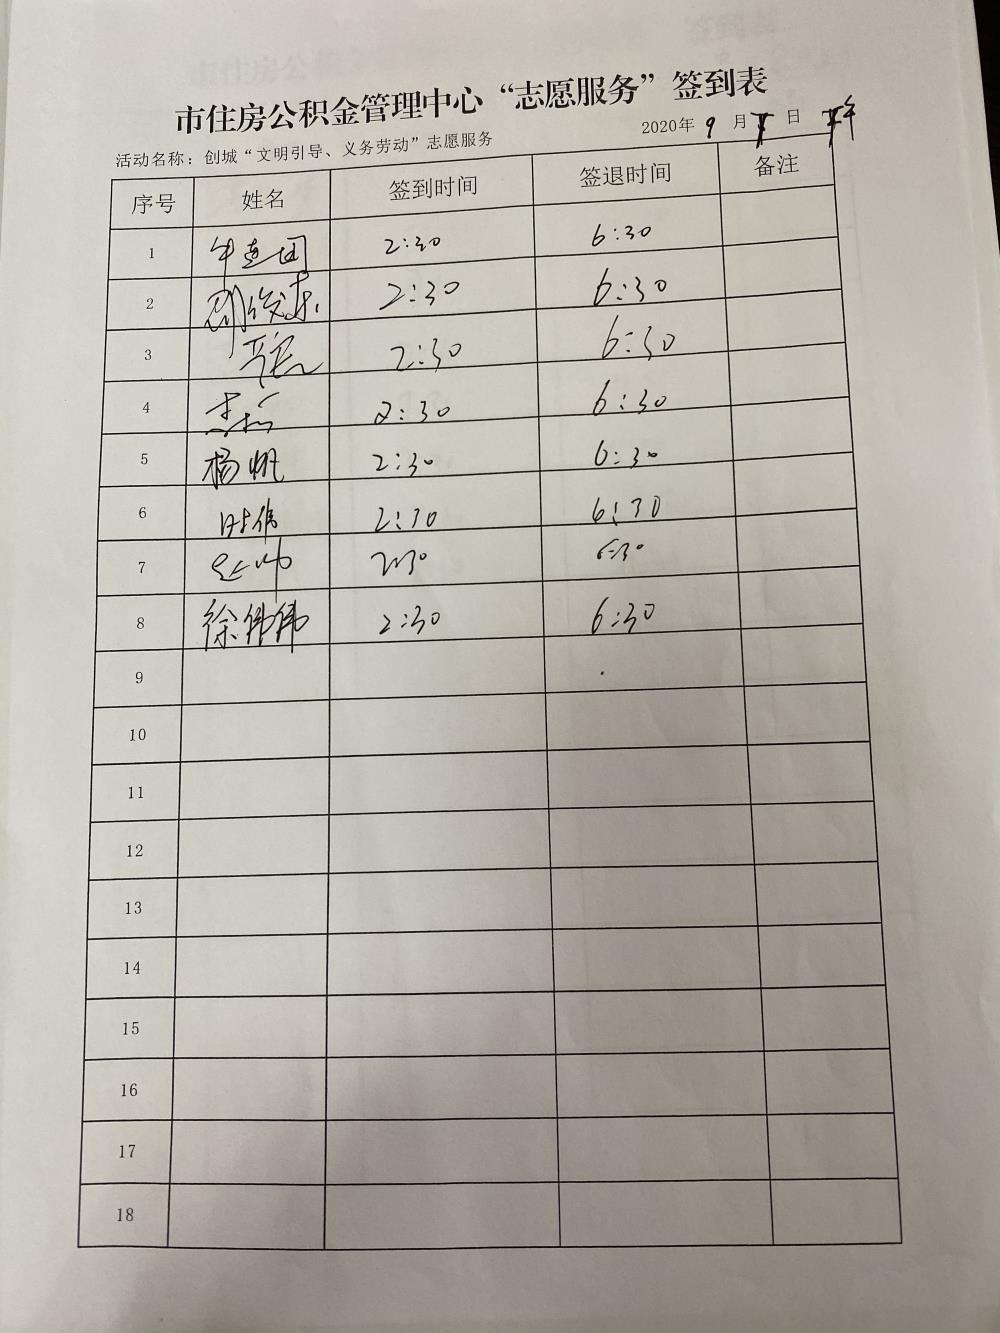 市住房公积金管理中心“志愿服务”签到表
活动名称：创城“文明引导、义务劳动”志愿服务
2020年 9 月 日 下午
序号 姓名 签到时间 签退时间 备注
1 2:30 6:30
2 2:30 6:30
3 2:30 6:30
4 2:30 6:30
5 杨帆 2:30 6:30
6 时伟 2:30 6:30
7 2:30 6:30
8 徐伟伟 2:30 6:30
9
10
11
12
13
14
15
16
17
18